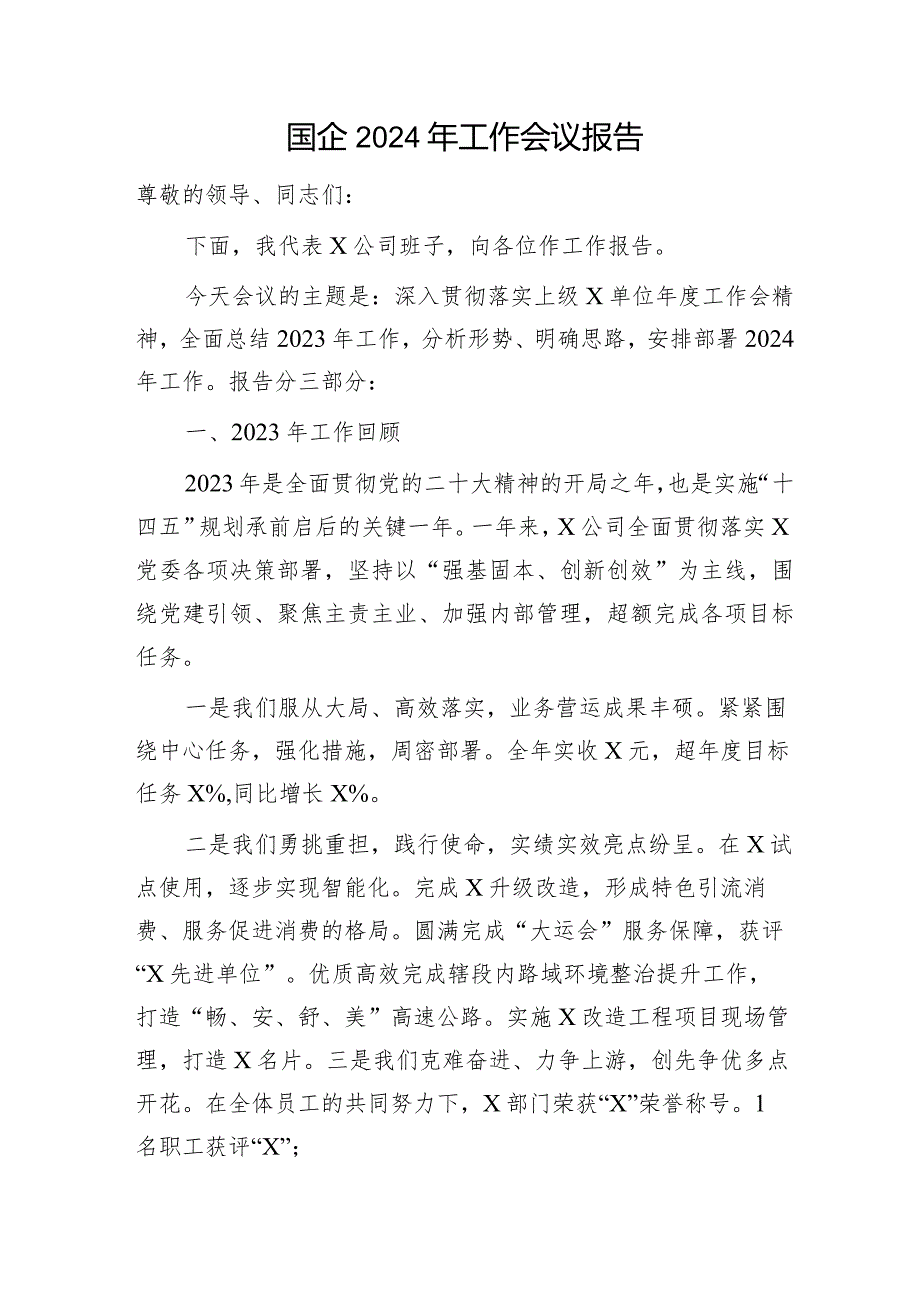 国企2024年工作会议报告
尊敬的领导、同志们：
下面，我代表X公司班子，向各位作工作报告。
今天会议的主题是：深入贯彻落实上级X单位年度工作会精
神，全面总结2023年工作，分析形势、明确思路，安排部署2024
年工作。报告分三部分：
一、2023年工作回顾
2023年是全面贯彻党的二十大精神的开局之年，也是实施“十
四五”规划承前启后的关键一年。一年来，X公司全面贯彻落实X
党委各项决策部署，坚持以“强基固本、创新创效”为主线，围
绕党建引领、聚焦主责主业、加强内部管理，超额完成各项目标
任务。
一是我们服从大局、高效落实，业务营运成果丰硕。紧紧围
绕中心任务，强化措施，周密部署。全年实收X元，超年度目标
任务X%,同比增长X%。
二是我们勇挑重担，践行使命，实绩实效亮点纷呈。在X试
点使用，逐步实现智能化。完成X升级改造，形成特色引流消
费、服务促进消费的格局。圆满完成“大运会”服务保障，获评
“X先进单位”。优质高效完成辖段内路域环境整治提升工作，
打造“畅、安、舒、美”高速公路。实施X改造工程项目现场管
理，打造X名片。三是我们克难奋进、力争上游，创先争优多点
开花。在全体员工的共同努力下，X部门荣获“X”荣誉称号。1
名职工获评“X”；